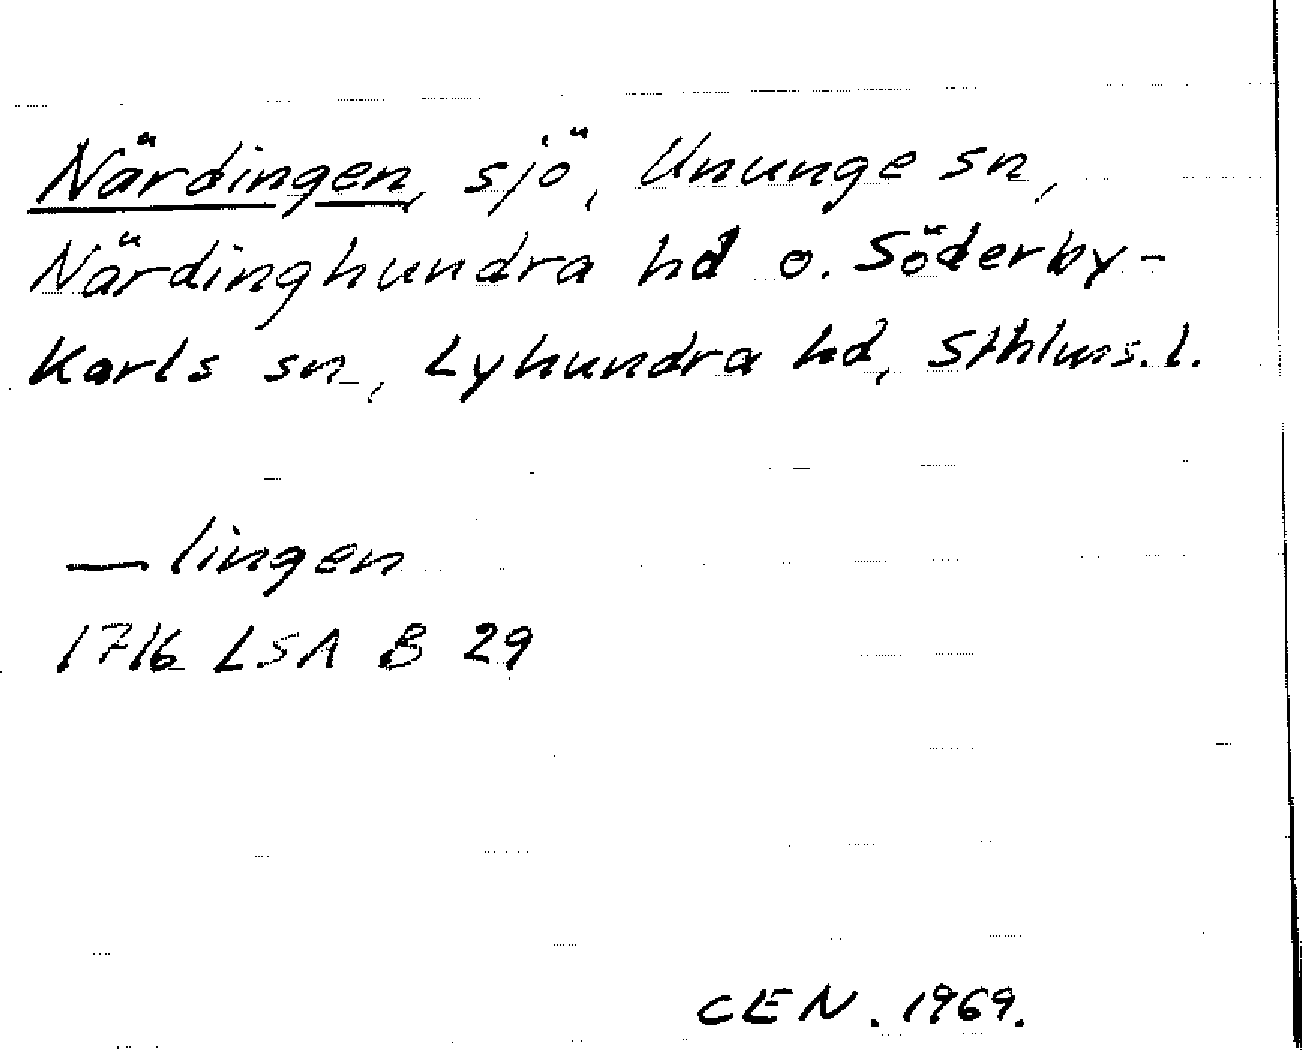 Närdingen, sjö, Ununge sn,
Närdinghundra hd o. Söderby-
Karls sn, Lyhundra hd, Sthlms. l.
— lingen
1716 LSA B 29
CEN. 1969.